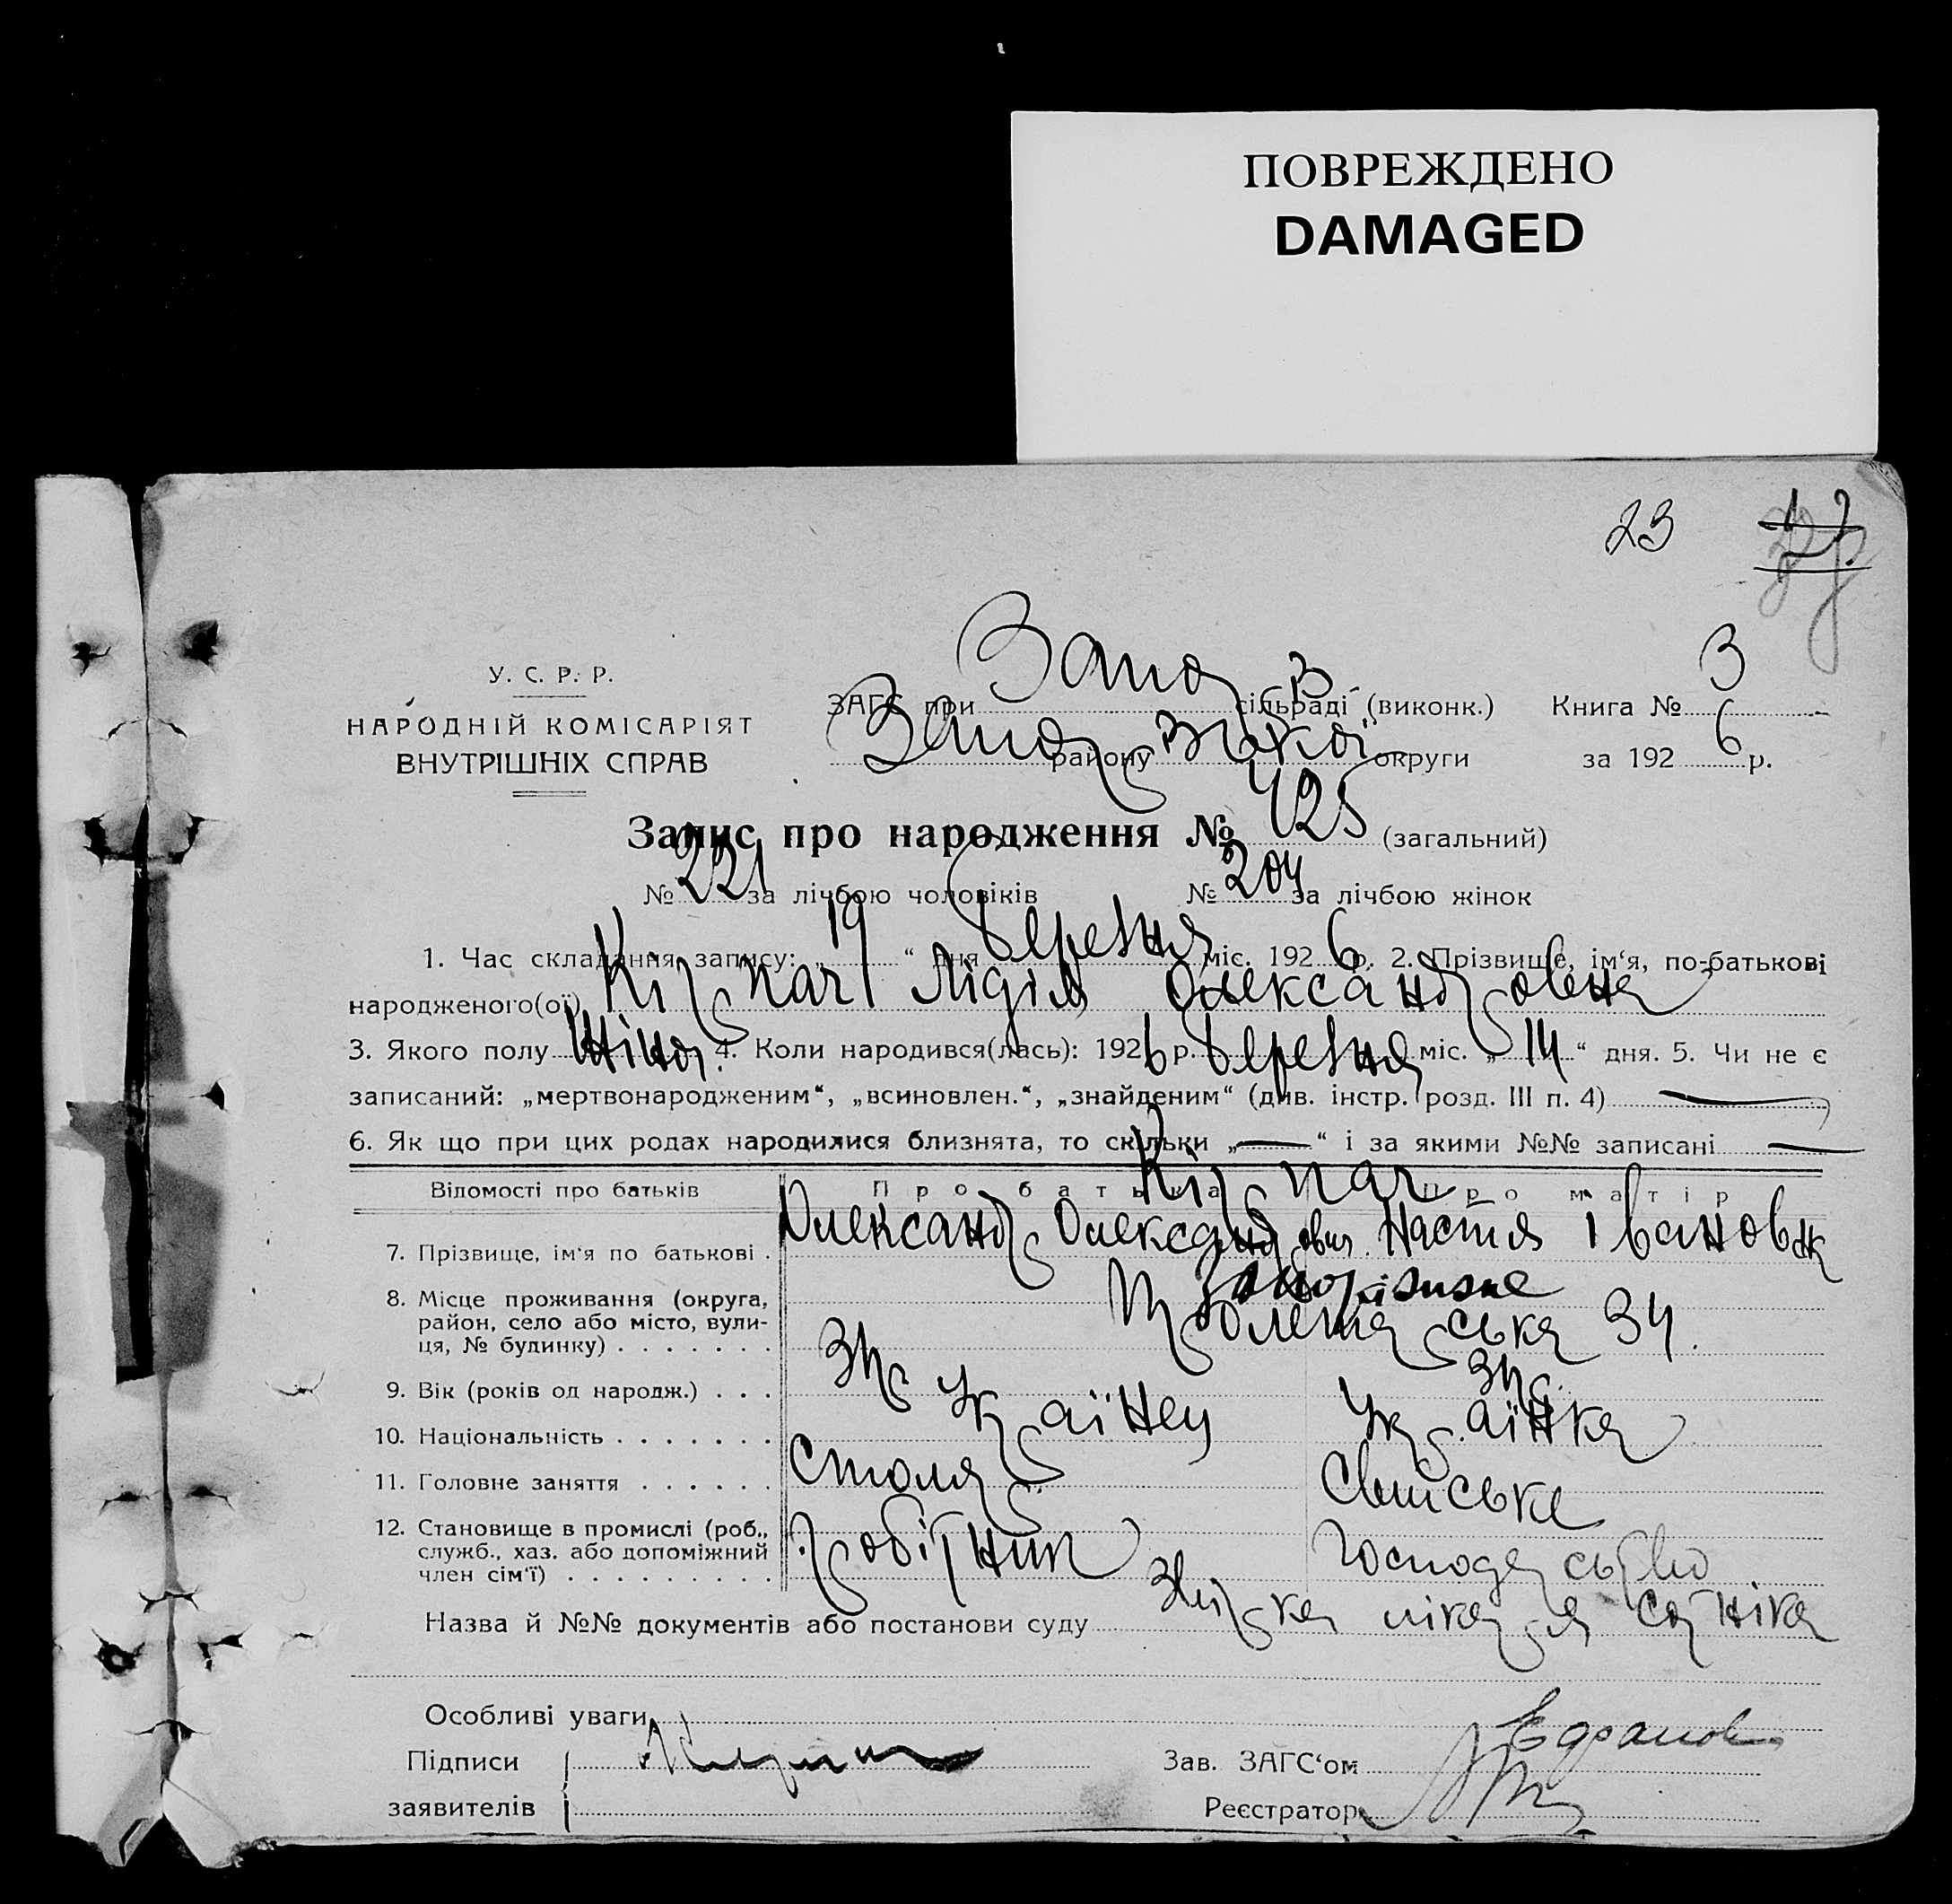 ПОВРЕЖДЕНО
DAMAGED
23
У. С. Р. Р.
НАРОДНІЙ КОМІСАРІЯТ
ВНУТРІШНІХ СПРАВ
ЗАГС при Запор. сільраді (виконк.) Книга № 3
Запорізької району округи за 1926 р.
Запис про народження № 425 (загальний)
№ 221 за лічбою чоловіків № 204 за лічбою жінок
1. Час складання запису: „19“ дня березня міс. 1926 р. 2. Прізвище, ім‘я, по-батькові
народженого(ої) Кірпач Лідія Олександровна
3. Якого полу жіноч. 4. Коли народився(лась): 1926 р. березня міс. „14“ дня. 5. Чи не є
записаний: „мертвонародженим“, „всиновлен.“, „знайденим“ (див. інстр. розд. III п. 4) —
6. Як що при цих родах народилися близнята, то скільки „—“ і за якими №№ записані —
Відомості про батьків Про батька Про матір
Кірпач
7. Прізвище, ім‘я по батькові . Олександр Олександрович Настя Івановна
8. Місце проживання (округа, район, село або місто, вули- ця, № будинку) . . . . . . . Запоріжжє
Пролетарська 34.
9. Вік (років од народж.) . . . 3
10. Національність . . . . . . . Українец Українка
11. Головне заняття . . . . . . Столяр Сельське
12. Становище в промислі (роб., служб., хаз. або допоміжний член сім‘ї) . . . . . . . . . робітник господарство
Назва й №№ документів або постанови суду лікаря
Особливі уваги
Підписи
заявителів
Зав. ЗАГС‘ом
Реєстратор